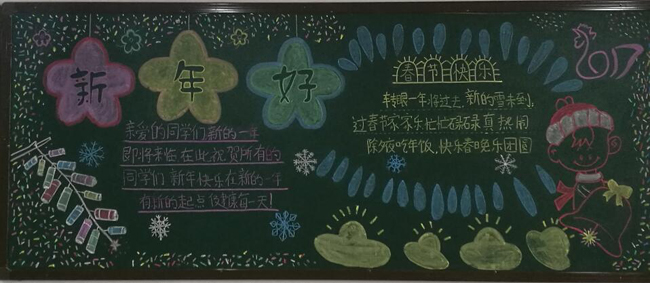 新年好
亲爱的同学们新的一年
即将来临在此祝贺所有的
同学们新年快乐在新的一年
有新的起点 健康每一天!
春节快乐
转眼一年将过去,新的雪来到,
过春节家家乐忙忙碌碌真热闹
除夕夜吃年饭,快乐春晚乐团圆